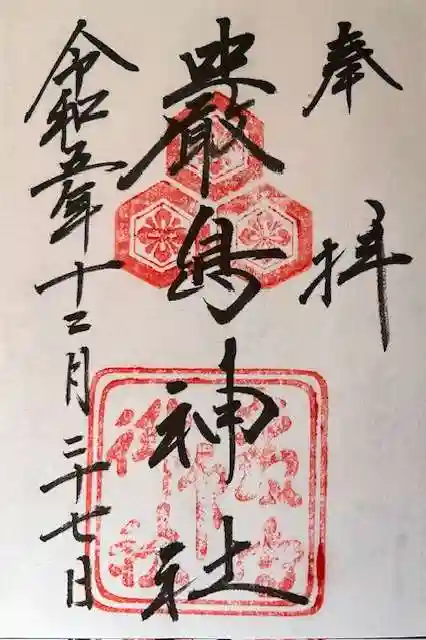 奉拝
厳島神社
令和五年十二月二十七日